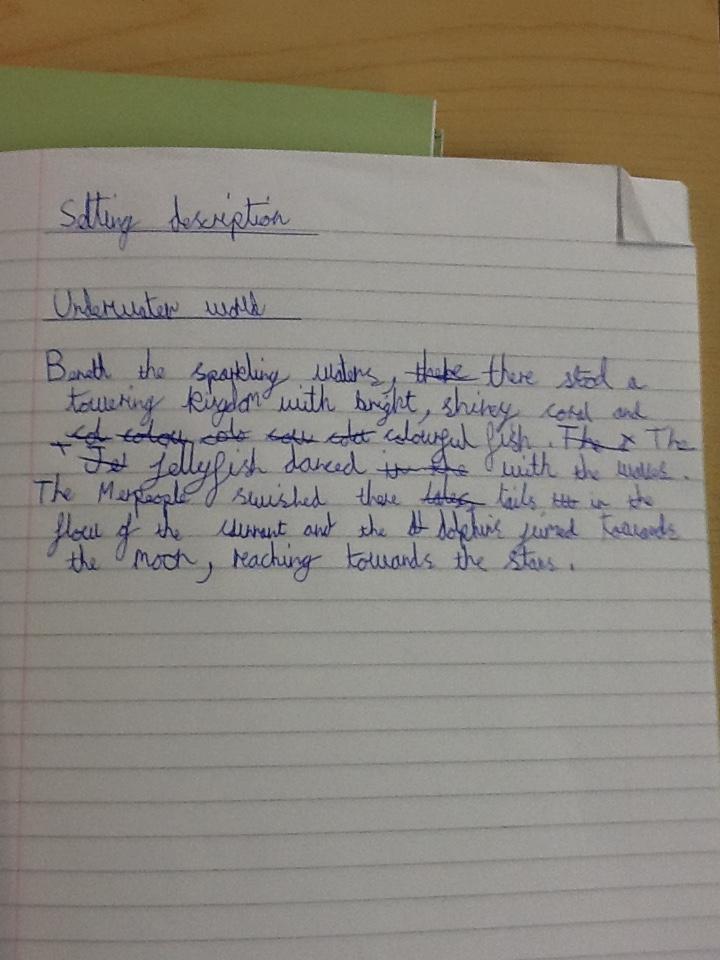 Setting description
Underwater world
Beneath the sparkling waters, there there stood a
towering kingdom with bright, shiney coral and
col colou colo colour fish. The The
Jellyfish danced in the with the waves.
The Merpeople swished there tails in the
flow of the current and the dolphins jumped towards
the moon, reaching towards the stars.